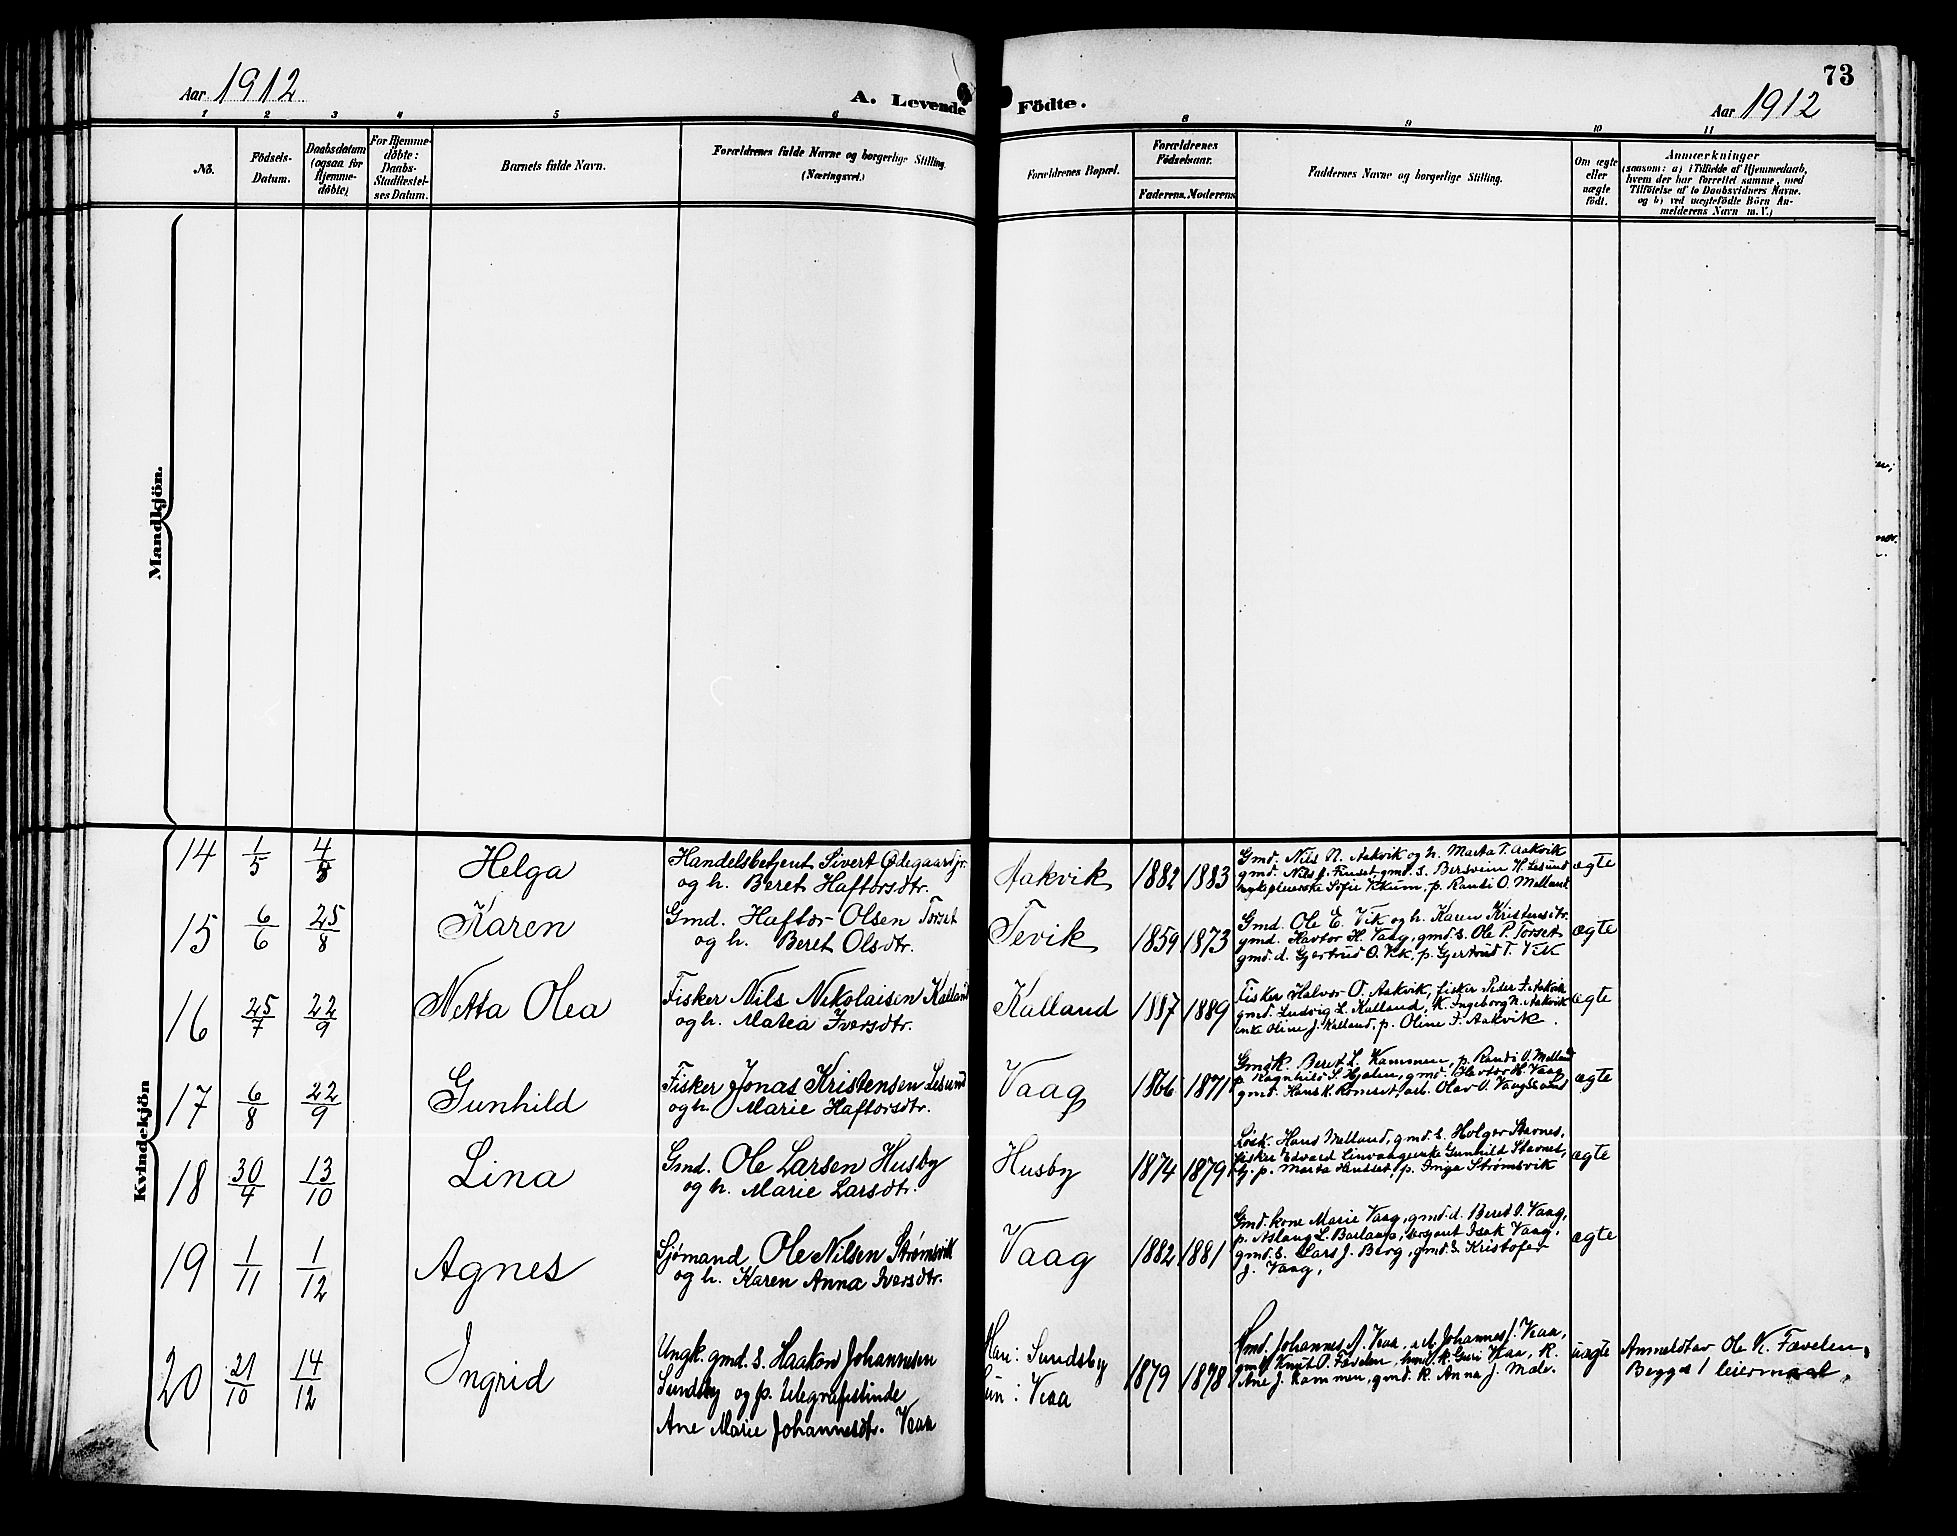 73
Aar 1912
A. Levende Födte.
Aar 1912
1 2 3 4 5 6 8 9 10 11
No.
Födsels-
Datum.
Daabsdatum
(ogsaa for
Hjemme-
döbte)
For Hjemme-
döbte:
Daabs-
Stadfæstel-
ses Datum.
Barnets fulde Navn.
Forældrenes fulde Navne og borgerlige Stilling.
(Næringsvei.)
Forældrenes Bopæl.
Forældrenes
Födselsaar.
Faderens. Moderens
Faddernes Navne og borgerlige Stilling.
Om ægte
eller
uægte
födt.
Anmærkninger
(saasom: a) i Tilfælde af Hjemmedaab,
hvem der har forrettet samme, med
Tilföielse af to Daabsvidners Navne.
og b) ved uægtefödte Börn An-
melderens Navn m. V.)
Mandkjön.
Kvindekjön
14 1/5 4/8 Helga
Handelsbetjent Sivert Ødegaard jr.
og h. Beret Haftorsdtr.
Aakvik 1882 1883
Gmd. Nils N. Aakvik og h. Marta T. Aakvik
gmd. Nils J. gmd. s. Bersvein H. Lesund
sykepleierske Sofie p. Randi O. Melland
ægte
15 6/6 25/8 Karen
Gmd. Haftor Olsen Torset
og h. Beret Olsdtr.
Tevik 1859 1873
Gmd. Ole E. Vik og h. Karen Kristensdtr.
gmd. Havtor H. Vaag, gmd. s. Ole P. Torset
gmd. d. Gjertrud O. Vik, p. Gjertrud T. Vik
ægte
16 25/7 22/9 Netta Olea
Fisker Nils Nikolaisen Kalland
og h. Matea Iversdtr.
Kalland 1887 1889
Fisker Halvor O. Aakvik, fisker Peder Fr. Aakvik
gmd. Ludvig L. Kalland, K. Ingeborg N. Aakvik
enke Oline J. Kalland, p. Oline F. Aakvik.
ægte
17 6/8 22/9 Gunhild
Fisker Jonas Kristensen Lesund
og h. Marie Haftorsdtr.
Vaag 1866 1871
Gmdk. Beret L. Kammen, p. Randi O. Melland
p. Ragnhild S. Hjalen, gmd. Havtor H. Vaag
gmd. Hans K. Romset, arb. Olav O. Vaagsland
ægte
18 30/9 13/10 Lina
Gmd. Ole Larsen Husby
og h. Marie Larsdtr.
Husby 1874 1879
Løsk. Hans Melland, gmd. s. Holger Stavnes,
fisker Edvard enke Gunhild Stavnes,
tj. p. Marta p. Inga Strømsvik
ægte
19 1/11 1/12 Agnes
Sjömand Ole Nilsen Strømsvik
og h. Karen Anna Iversdtr.
Vaag 1882 1881
Gmd. kone Marie Vaag, gmd. d. Beret O. Vaag,
p. Aslaug L. sergeant Isak Vaag,
gmd. s. Lars J. Berg, gmd. s. Kristofer
J. Vaag,
ægte
20 21/10 14/12 Ingrid
Ungk. gmd. s. Haakon Johannesen
Sundsby og p. telegrafistinde
Ane Marie Johannesdtr. Vaa
Han: Sundsby
Hun: Vaa
1879 1878
Gmd. Johannes J. Vaa, Johannes J. Vaa,
gmd. Knut O. Fævelen, gmd. k. Guri Vaa, K.
Ane J. Kammen, gmd. k. Anna J. Male.
uægte
Anmeldt av Ole K. Fævelen,
Begge 1 leiermaal.